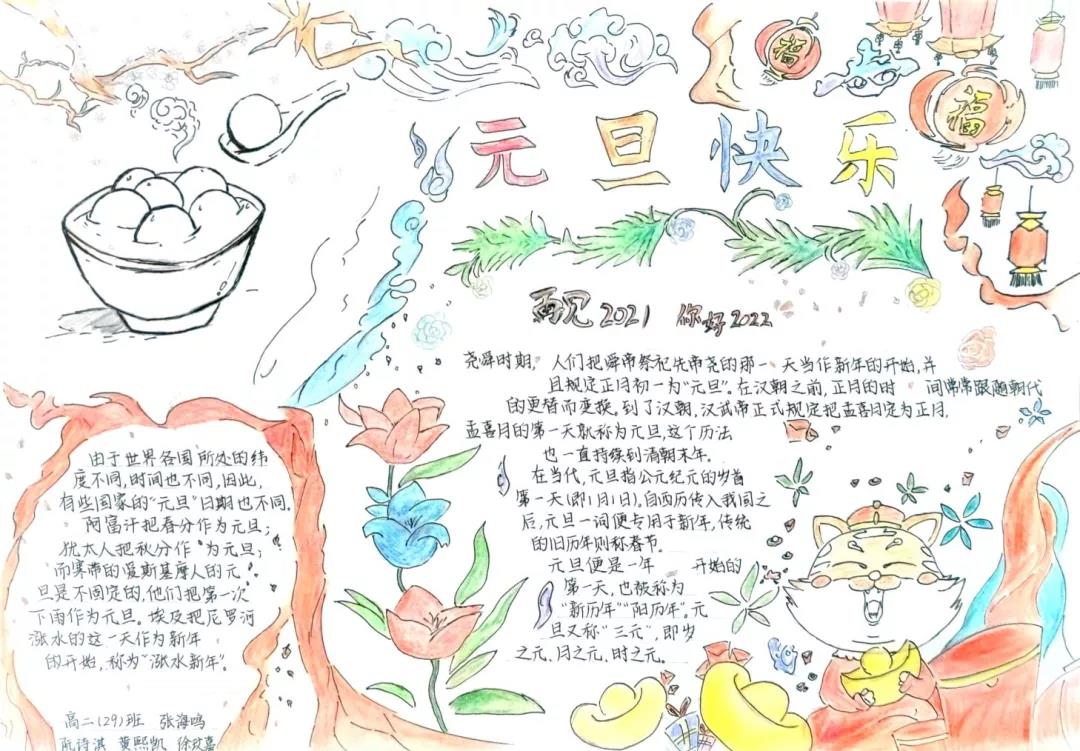 福
福
元旦快乐
再见2021 你好2022
尧舜时期,人们把舜帝祭祀先帝尧的那一天当作新年的开始,并
且规定正月初一为“元旦”。在汉朝之前,正月的时间常常跟随朝代
的更替而变换。到了汉朝,汉武帝正式规定把孟喜月定为正月,
孟喜月的第一天就称为元旦,这个历法
也一直持续到清朝末年。
在当代,元旦指公元纪元的岁首
第一天(即1月1日)。自西历传入我国之
后,元旦一词便专用于新年,传统
的旧历年则称春节。
元旦便是一年开始的
第一天,也被称为
“新历年”“阳历年”。元
旦又称“三元”,即岁
之元、月之元、时之元。
由于世界各国所处的纬
度不同,时间也不同,因此,
有些国家的“元旦”日期也不同。
阿富汗把春分作为元旦;
犹太人把秋分作为元旦;
而寒带的爱斯基摩人的元
旦是不固定的,他们把第一次
下雨作为元旦。埃及把尼罗河
涨水的这一天作为新年
的开始,称为“涨水新年”。
高二(29)班 张海鸣
阮诗淇 黄熙凯 徐玟嘉